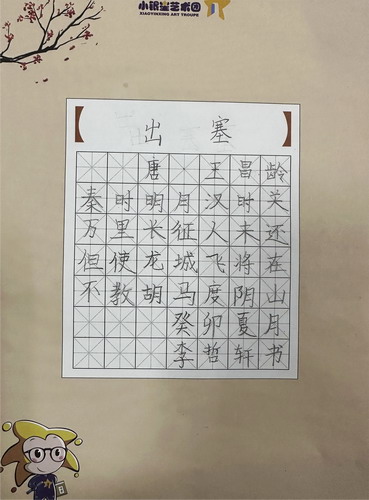 小银星艺术团
XIAOYINXING ART TROUPE
【出塞】
唐·王昌龄
秦时明月汉时关
万里长征人未还
但使龙城飞将在
不教胡马度阴山
癸卯夏月
李哲轩书